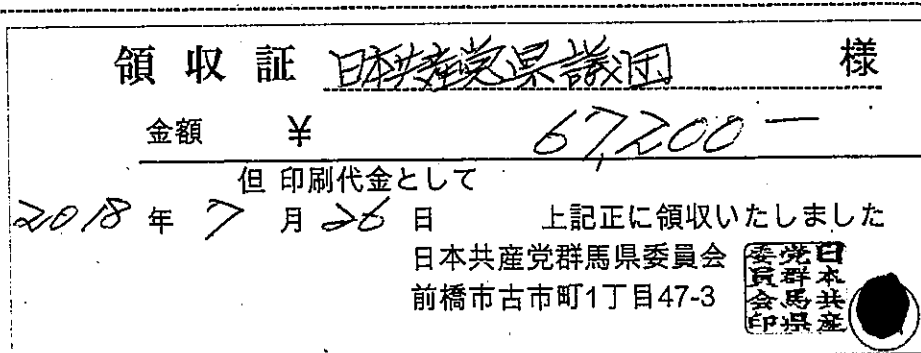 領収証 日本共産党県議団 様
金額 ¥ 67,200-
但 印刷代金として
2018 年 7 月 26 日 上記正に領収いたしました
日本共産党群馬県委員会
前橋市古市町1丁目47-3
日本共産党群馬県委員会印